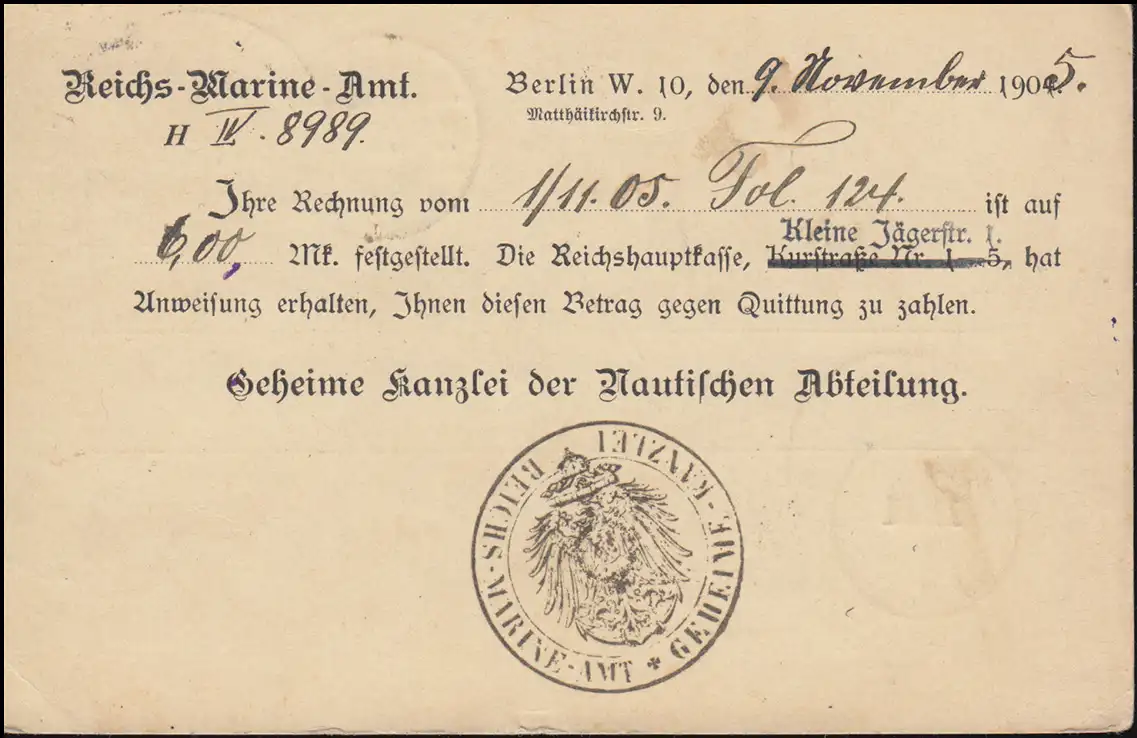 Reichs-Marine-Amt.
H IV. 8989.
Berlin W. 10, den 9. November 1905.
Matthäikirchstr. 9.
Ihre Rechnung vom 1/11. 05. Fol. 124. ist auf
Kleine Jägerstr. 1.
6,00 Mk. festgestellt. Die Reichshauptkasse, Kurstraße Nr. 1-5, hat
Anweisung erhalten, Ihnen diesen Betrag gegen Quittung zu zahlen.
Geheime Kanzlei der Nautischen Abteilung.
REICHS-MARINE-AMT * GEHEIME-KANZLEI